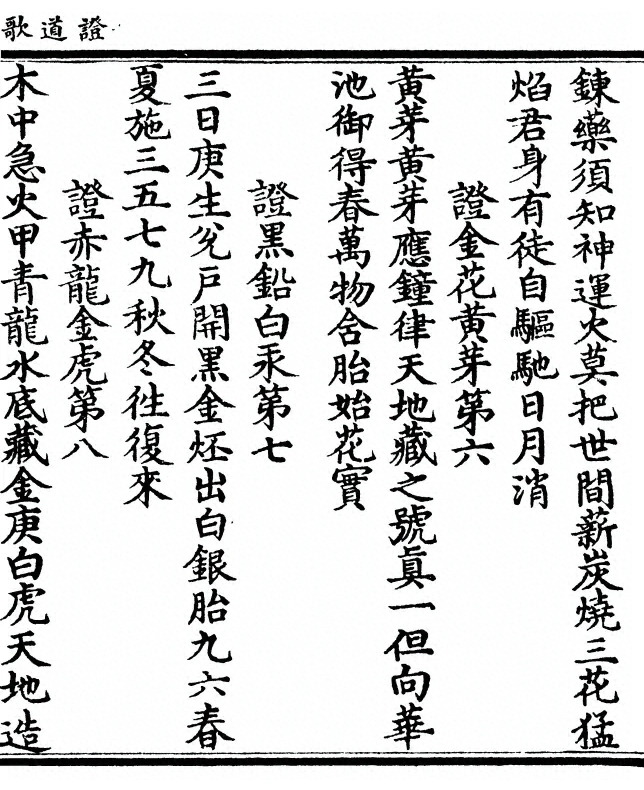 證道歌
鍊藥須知神運火莫把世間薪炭燒三花猛
焰君身有徒自驅馳日月消
證金花黃芽第六
黃芽黃芽應鐘律天地藏之號真一但向華
池御得春萬物含胎始花實
證黑鉛白汞第七
三日庚生兊戶開黑金炋出白銀胎九六春
夏施三五七九秋冬徃復來
證赤龍金虎第八
木中急火甲青龍水底藏金庚白虎天地造